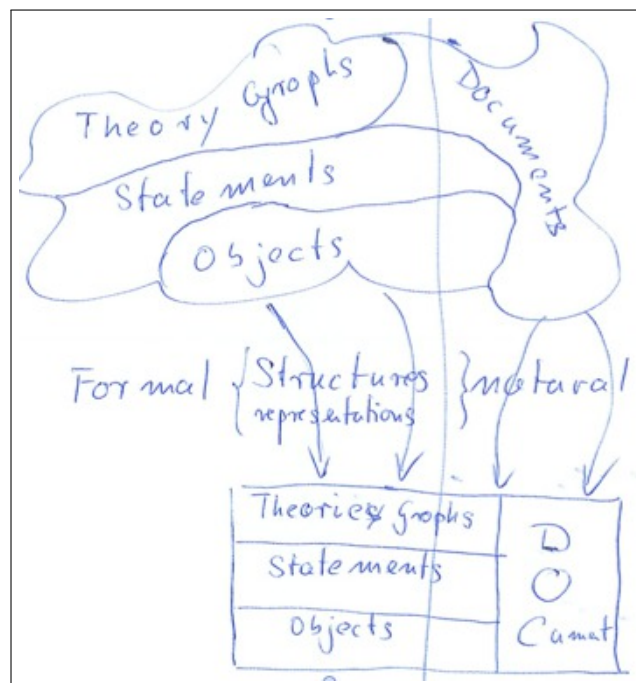 Theory Graphs
Documents
Statements
Objects
Formal { Structures } natural
representations
Theories Graphs
Statements
Objects
D
O
Cumat